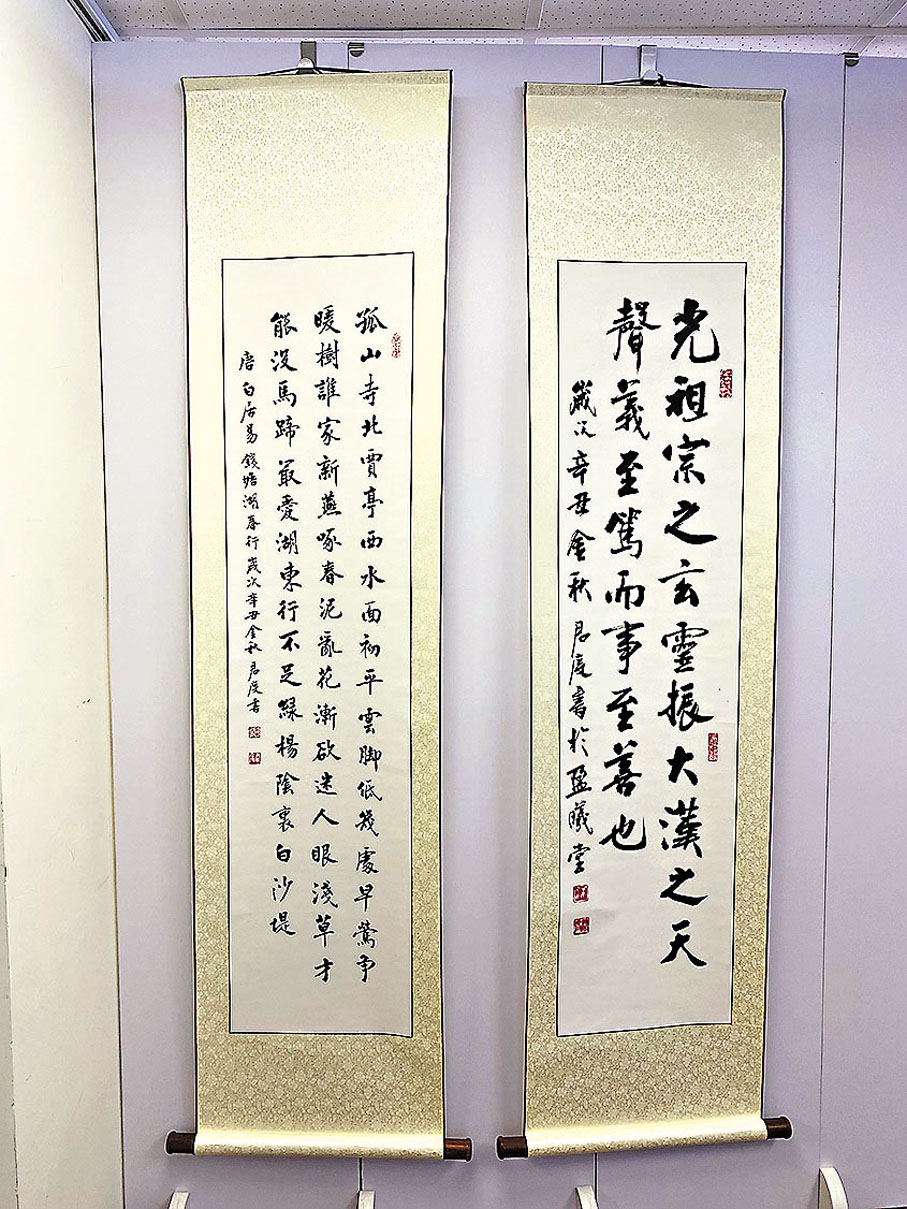 光祖宗之玄靈振大漢之天
聲義至篤而事至善也
歲次辛丑金秋君度書於盈曦堂
孤山寺北賈亭西水面初平雲脚低幾處早鶯爭
暖樹誰家新燕啄春泥亂花漸欲迷人眼淺草才
能沒馬蹄最愛湖東行不足綠楊陰裏白沙堤
唐白居易錢塘湖春行歲次辛丑金秋君度書